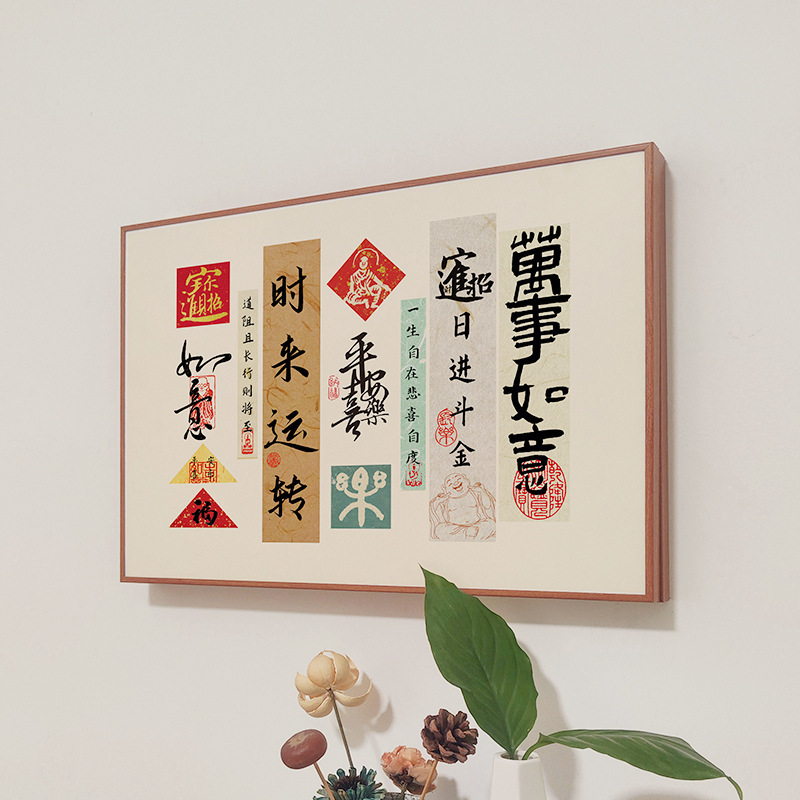 招财進寶
如意
福
道阻且长行则将至
时来运转
平安喜樂
樂
一生自在悲喜自度
招财進寶
日进斗金
萬事如意